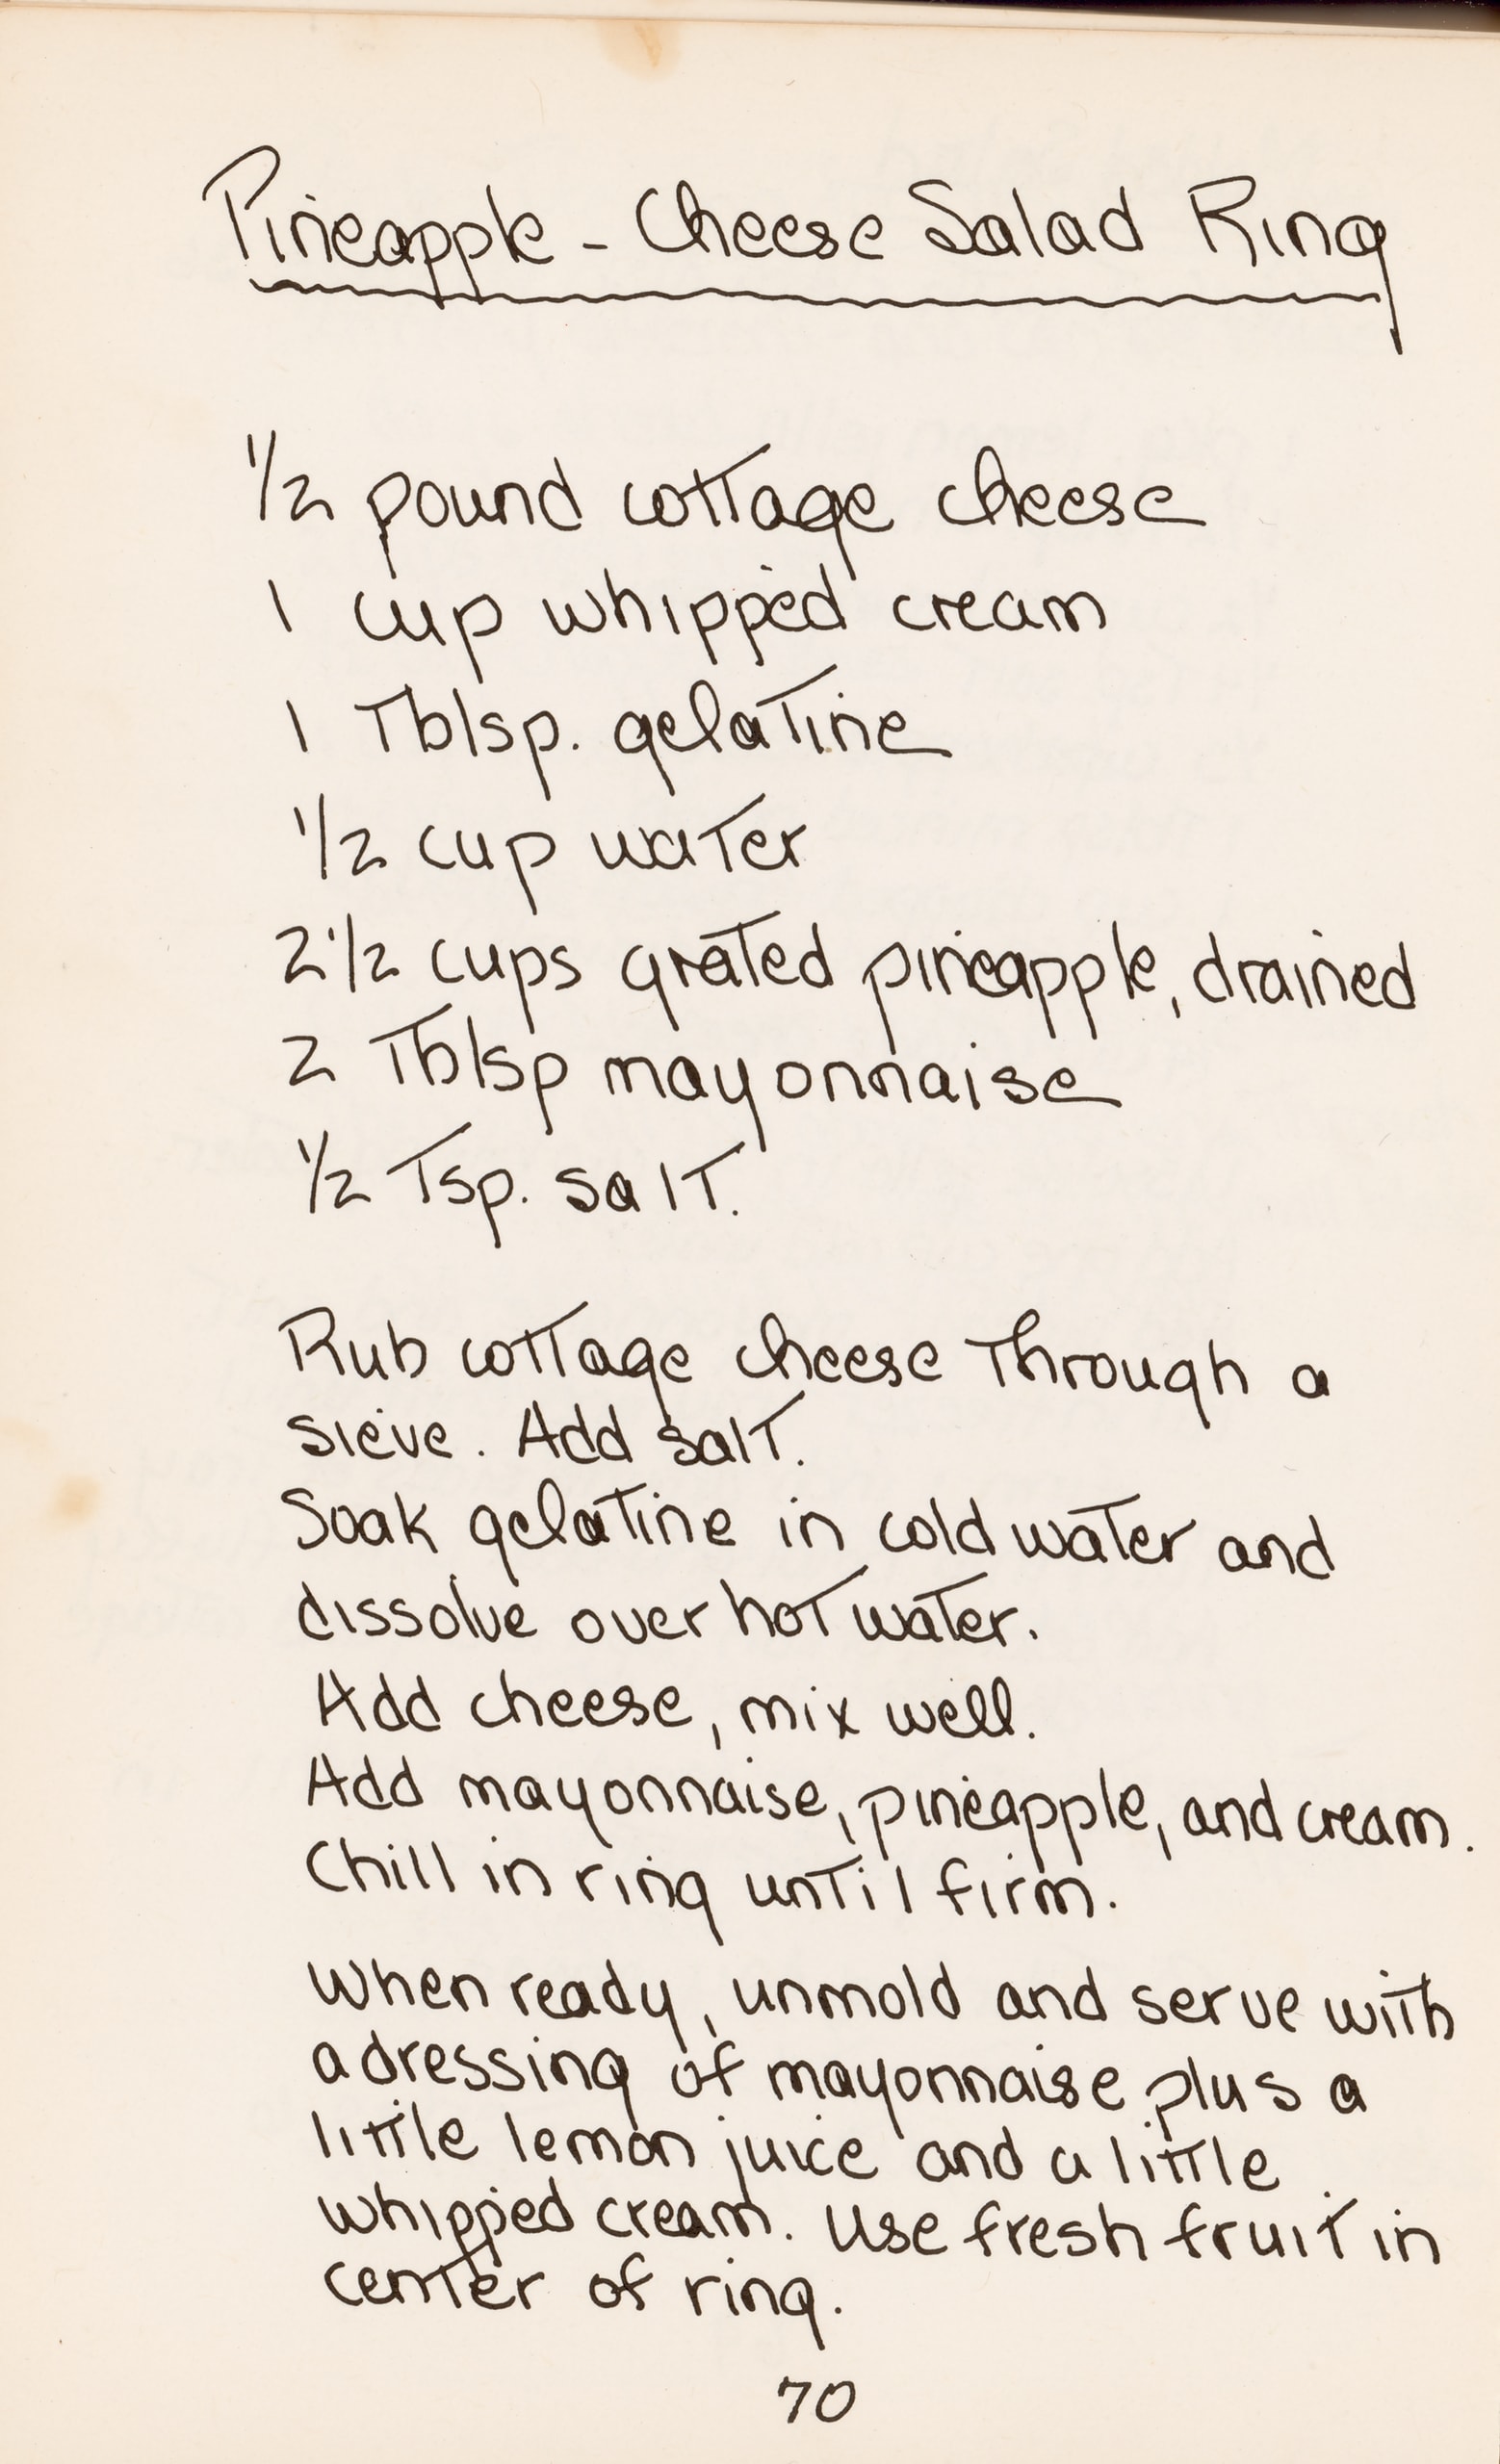 Pineapple - Cheese Salad Ring
1/2 pound cottage cheese
1 cup whipped cream
1 Tblsp. gelatine
1/2 cup water
2 1/2 cups grated pineapple, drained
2 Tblsp mayonnaise
1/2 Tsp. salt.
Rub cottage cheese through a
sieve. Add salt.
Soak gelatine in cold water and
dissolve over hot water.
Add cheese, mix well.
Add mayonnaise, pineapple, and cream.
Chill in ring until firm.
When ready, unmold and serve with
a dressing of mayonnaise plus a
little lemon juice and a little
whipped cream. Use fresh fruit in
center of ring.
70